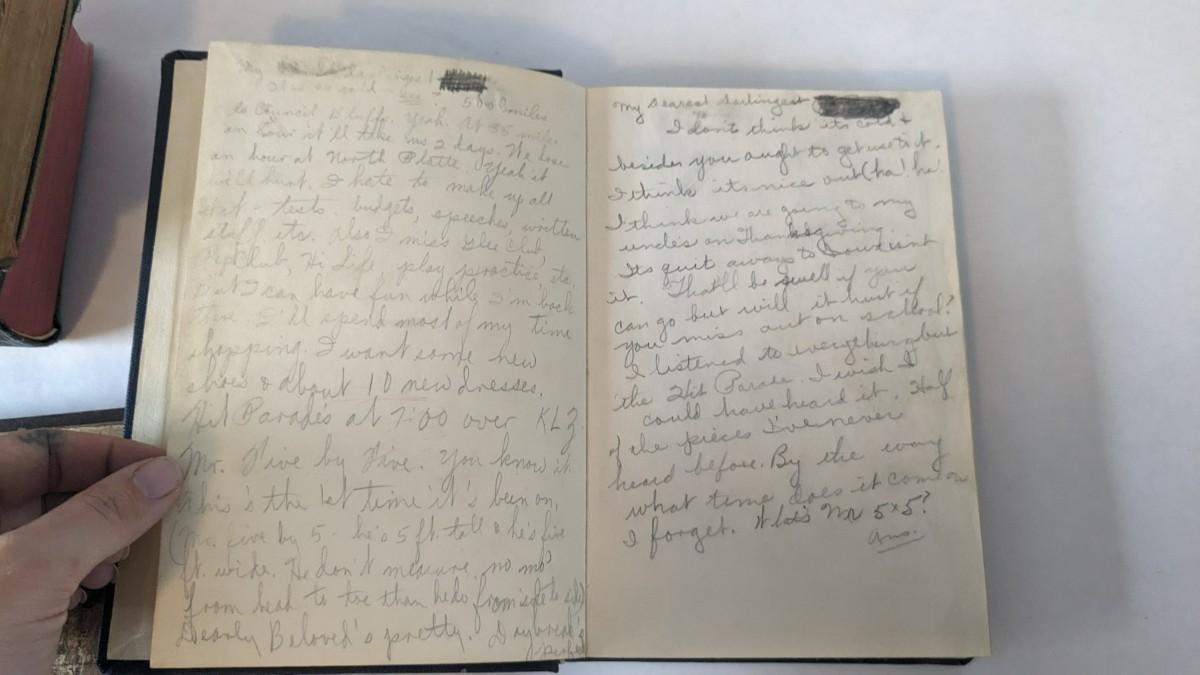 My
is cold - see ? 500 miles
to Council Bluffs. Yeah. At 35 miles
an hour it'll take us 2 days. We lose
an hour at North Platte. Yeah it
will hurt. I hate to make up all
that - tests, budgets, speeches, written
stuff etc. Also I miss Glee Club,
Pep Club, Hi Life, play practice, etc.
But I can have fun while I'm back
there I'll spend most of my time
shopping. I want some new
shoes & about 10 new dresses.
Hit Parade's at 7:00 over KLZ
Mr. Five by Five. You know it
this's the 1st time it's been on.
(Mr. five by 5 - he's 5 ft. tall & he's five
ft. wide. He don't measure no mo'
from head to toe than he do from side to side)
Dearly Beloved's pretty. Daybreak's
perfect
My Dearest Darlingest
I don't think its cold &
besides you ought to get use to it.
I think its nice out (ha! ha!
I think we are going to my
uncles on Thanksgiving.
Its quit aways to isnt
it. That'll be swell if you
can go but will it hurt if
you miss out on school?
I listened to everything but
the Hit Parade. I wish I
could have heard it. Half
of the pieces I've never
heard before. By the way
what time does it come on
I forget. Mr 5x5?
Ans.